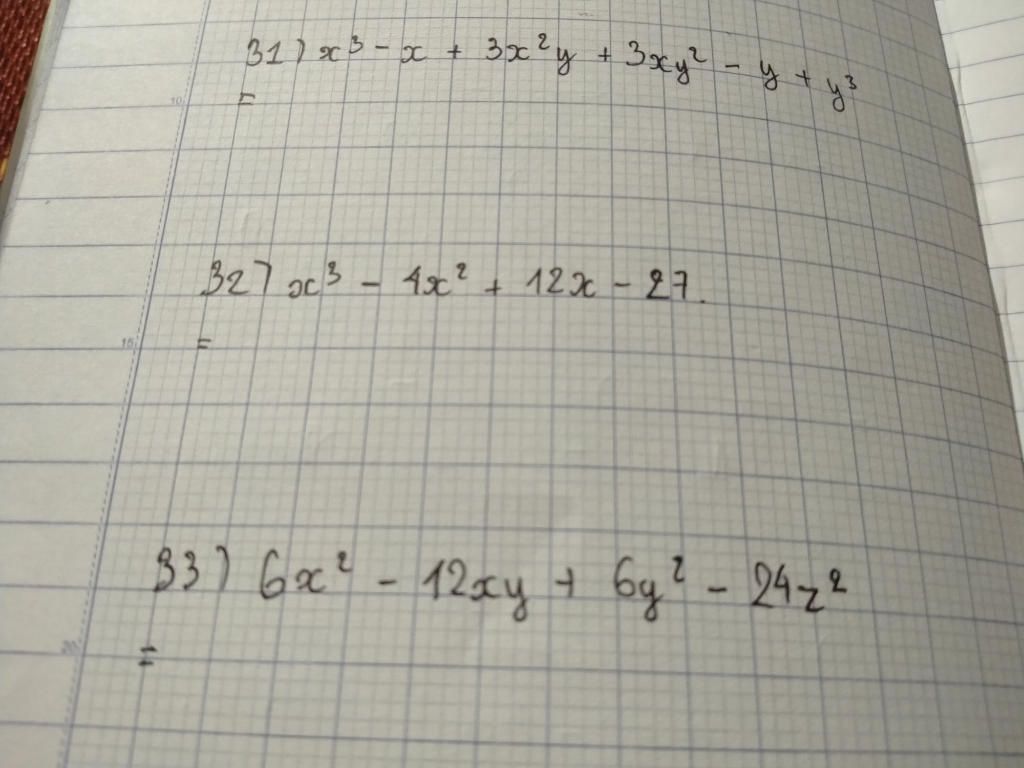 31) x³ - x + 3x²y + 3xy² - y + y³
=
32) x³ - 4x² + 12x - 27.
=
33) 6x² - 12xy + 6y² - 24z²
=